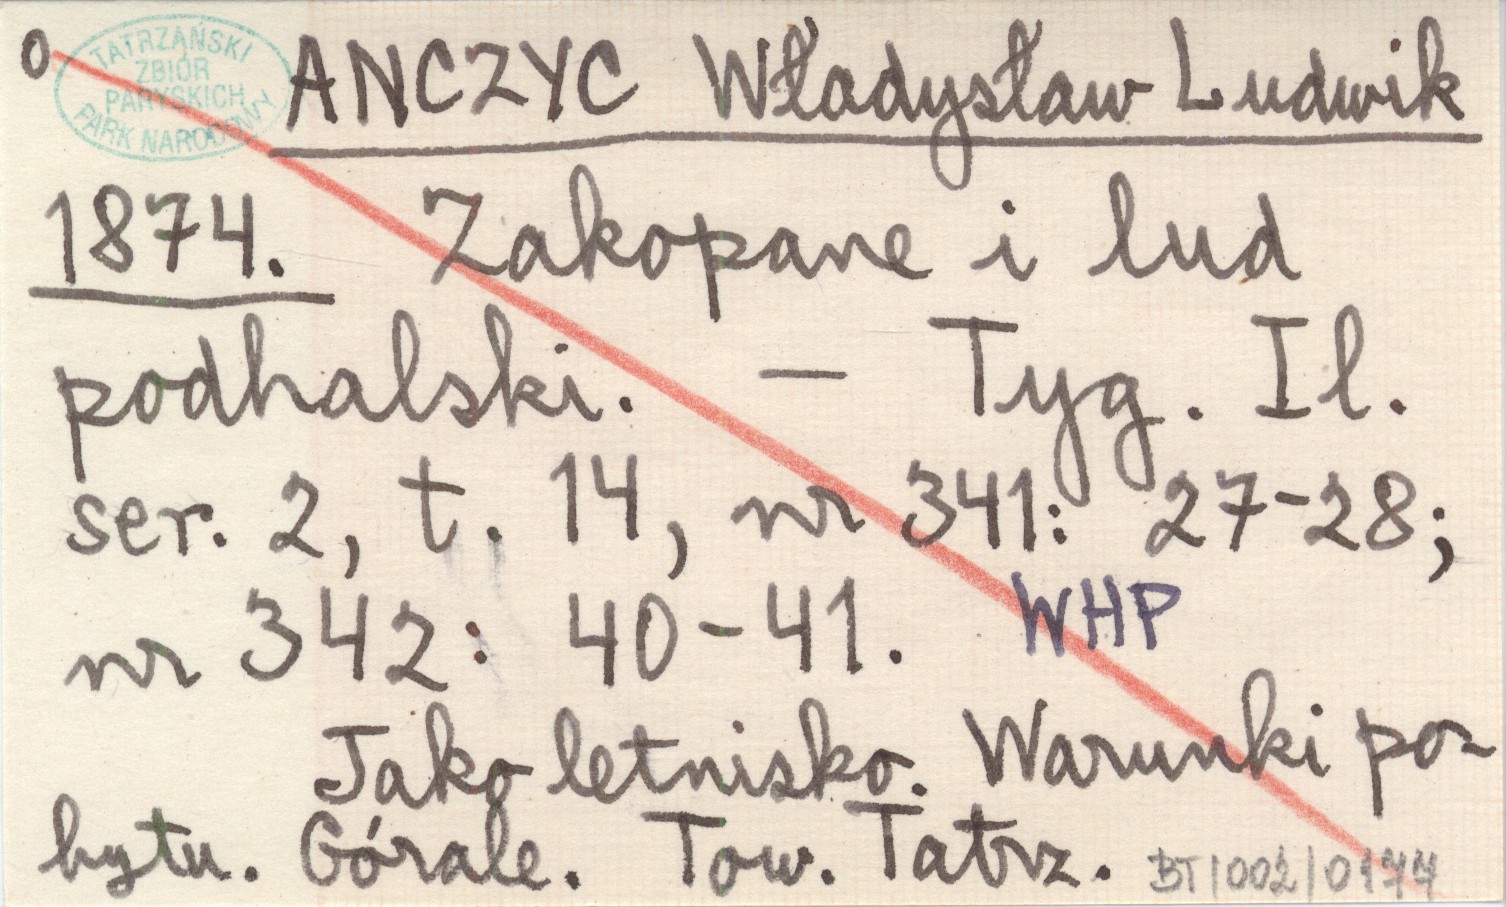 o
TATRZAŃSKI
ZBIÓR
PARYSKICH
PARK NARODOWY
ANCZYC Władysław Ludwik
1874. Zakopane i lud
podhalski. — Tyg. Il.
ser. 2, t. 14, nr 341: 27-28;
nr 342: 40-41. WHP
Jako letnisko. Warunki po-
bytu. Górale. Tow. Tatrz.
BT/002/0177